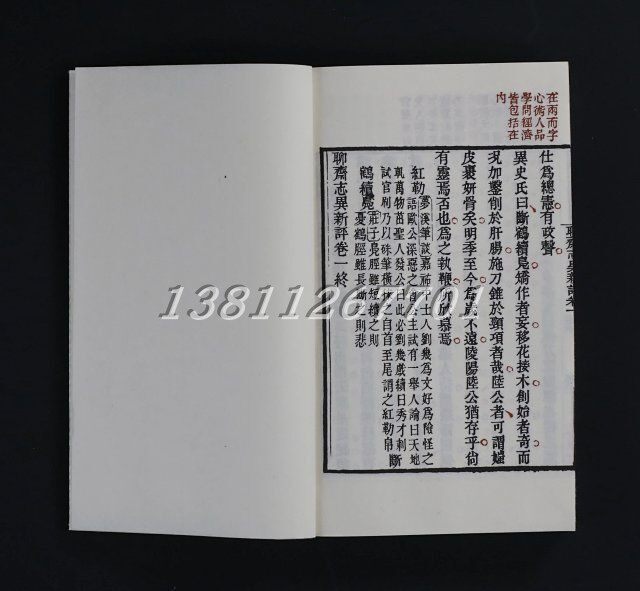 在兩而字
心術人品
學問經濟
皆包括在
內
仕爲總憲有政聲
異史氏曰斷鶴續鳧矯作者妄移花接木創始者奇而
况加鑿削於肝腸施刀錐於頸項者哉陸公者可謂媸
皮裹妍骨矣明季至今爲歲不遠陵陽陸公猶存乎尚
有靈焉否也爲之執鞭所欣慕焉
紅勒夢溪筆談嘉祐中士人劉幾爲文好爲險怪之
語歐公深惡之會公主試有一舉人論曰天地
軋萬物茁聖人發公曰此必劉幾戲續曰秀才剌
試官刷乃以硃筆橫抹自首至尾謂之紅勒帛 斷
鶴續鳧莊子鳧脛雖短續之則
憂鶴脛雖長斷之則悲
聊齋志異新評卷一終
13811267701